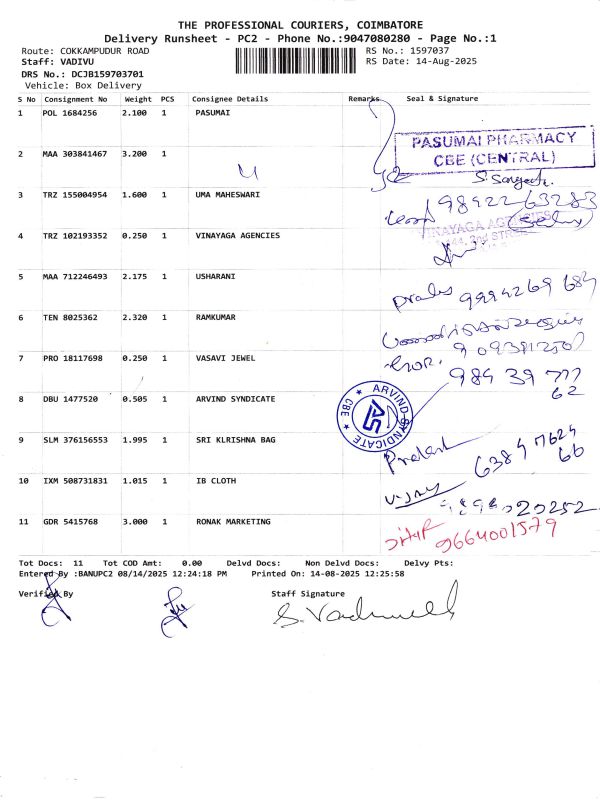 THE PROFESSIONAL COURIERS, COIMBATORE
Delivery Runsheet - PC2 - Phone No.:9047080280 - Page No.:1
Route: COKKAMPUDUR ROAD RS No.: 1597037
Staff: VADIVU RS Date: 14-Aug-2025
DRS No.: DCJB159703701
Vehicle: Box Delivery
S No Consignment No Weight PCS Consignee Details Remarks Seal & Signature
1 POL 1684256 2.100 1 PASUMAI
PASUMAI PHARMACY
CBE (CENTRAL)
2 MAA 303841467 3.200 1
3 TRZ 155004954 1.600 1 UMA MAHESWARI 98422 63283
4 TRZ 102193352 0.250 1 VINAYAGA AGENCIES
VINAYAGA AGENCIES
5 MAA 712246493 2.175 1 USHARANI
6 TEN 8025362 2.320 1 RAMKUMAR
7 PRO 18117698 0.250 1 VASAVI JEWEL
984 39 777
62
8 DBU 1477520 0.505 1 ARVIND SYNDICATE
ARVIND SYNDICATE
CBE
9 SLM 376156553 1.995 1 SRI KLRISHNA BAG
10 IXM 508731831 1.015 1 IB CLOTH
vijay
11 GDR 5415768 3.000 1 RONAK MARKETING 9664001579
Tot Docs: 11 Tot COD Amt: 0.00 Delvd Docs: Non Delvd Docs: Delvy Pts:
Entered By :BANUPC2 08/14/2025 12:24:18 PM Printed On: 14-08-2025 12:25:58
Verified By Staff Signature